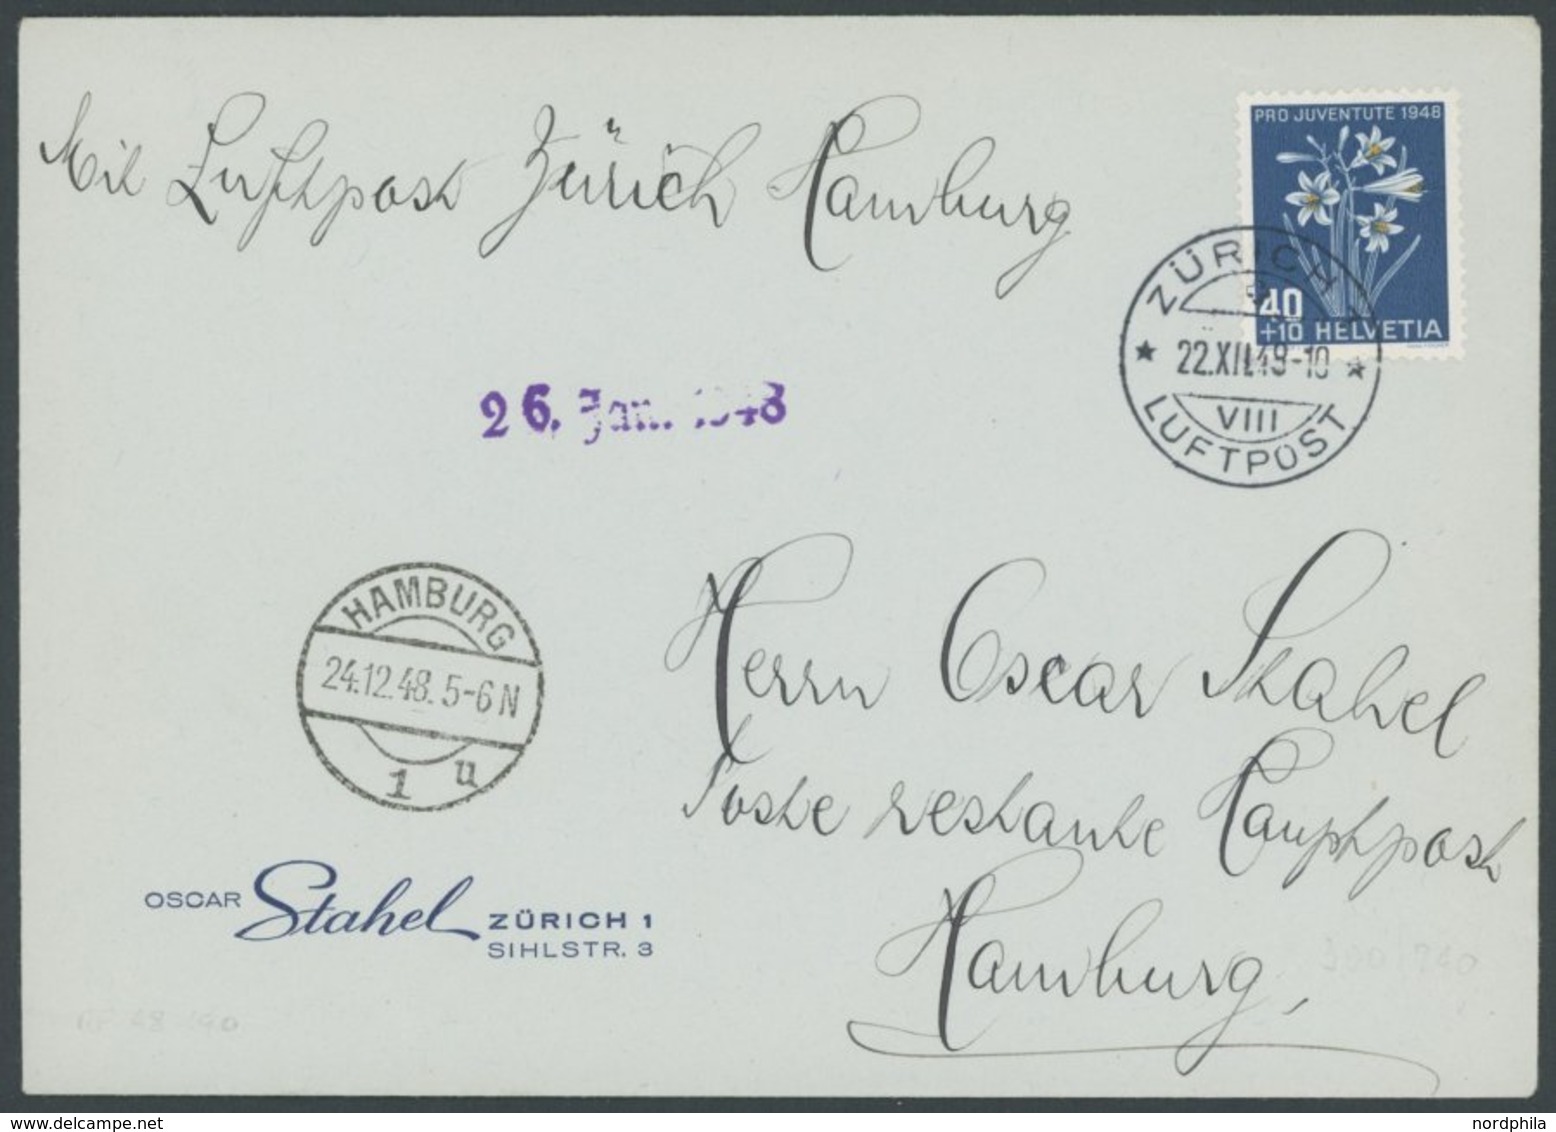 Mit Luftpost Zürich Hamburg
PRO JUVENTUTE 1948
40
+10 HELVETIA
ZÜRICH
22.XII.48-10
VIII
LUFTPOST
26. Jan. 1948
HAMBURG
24.12.48. 5-6 N
1 u
Herrn Oscar Stahel
Poste restante Hauptpost
Hamburg
OSCAR Stahel ZÜRICH 1
SIHLSTR. 3
nordphila